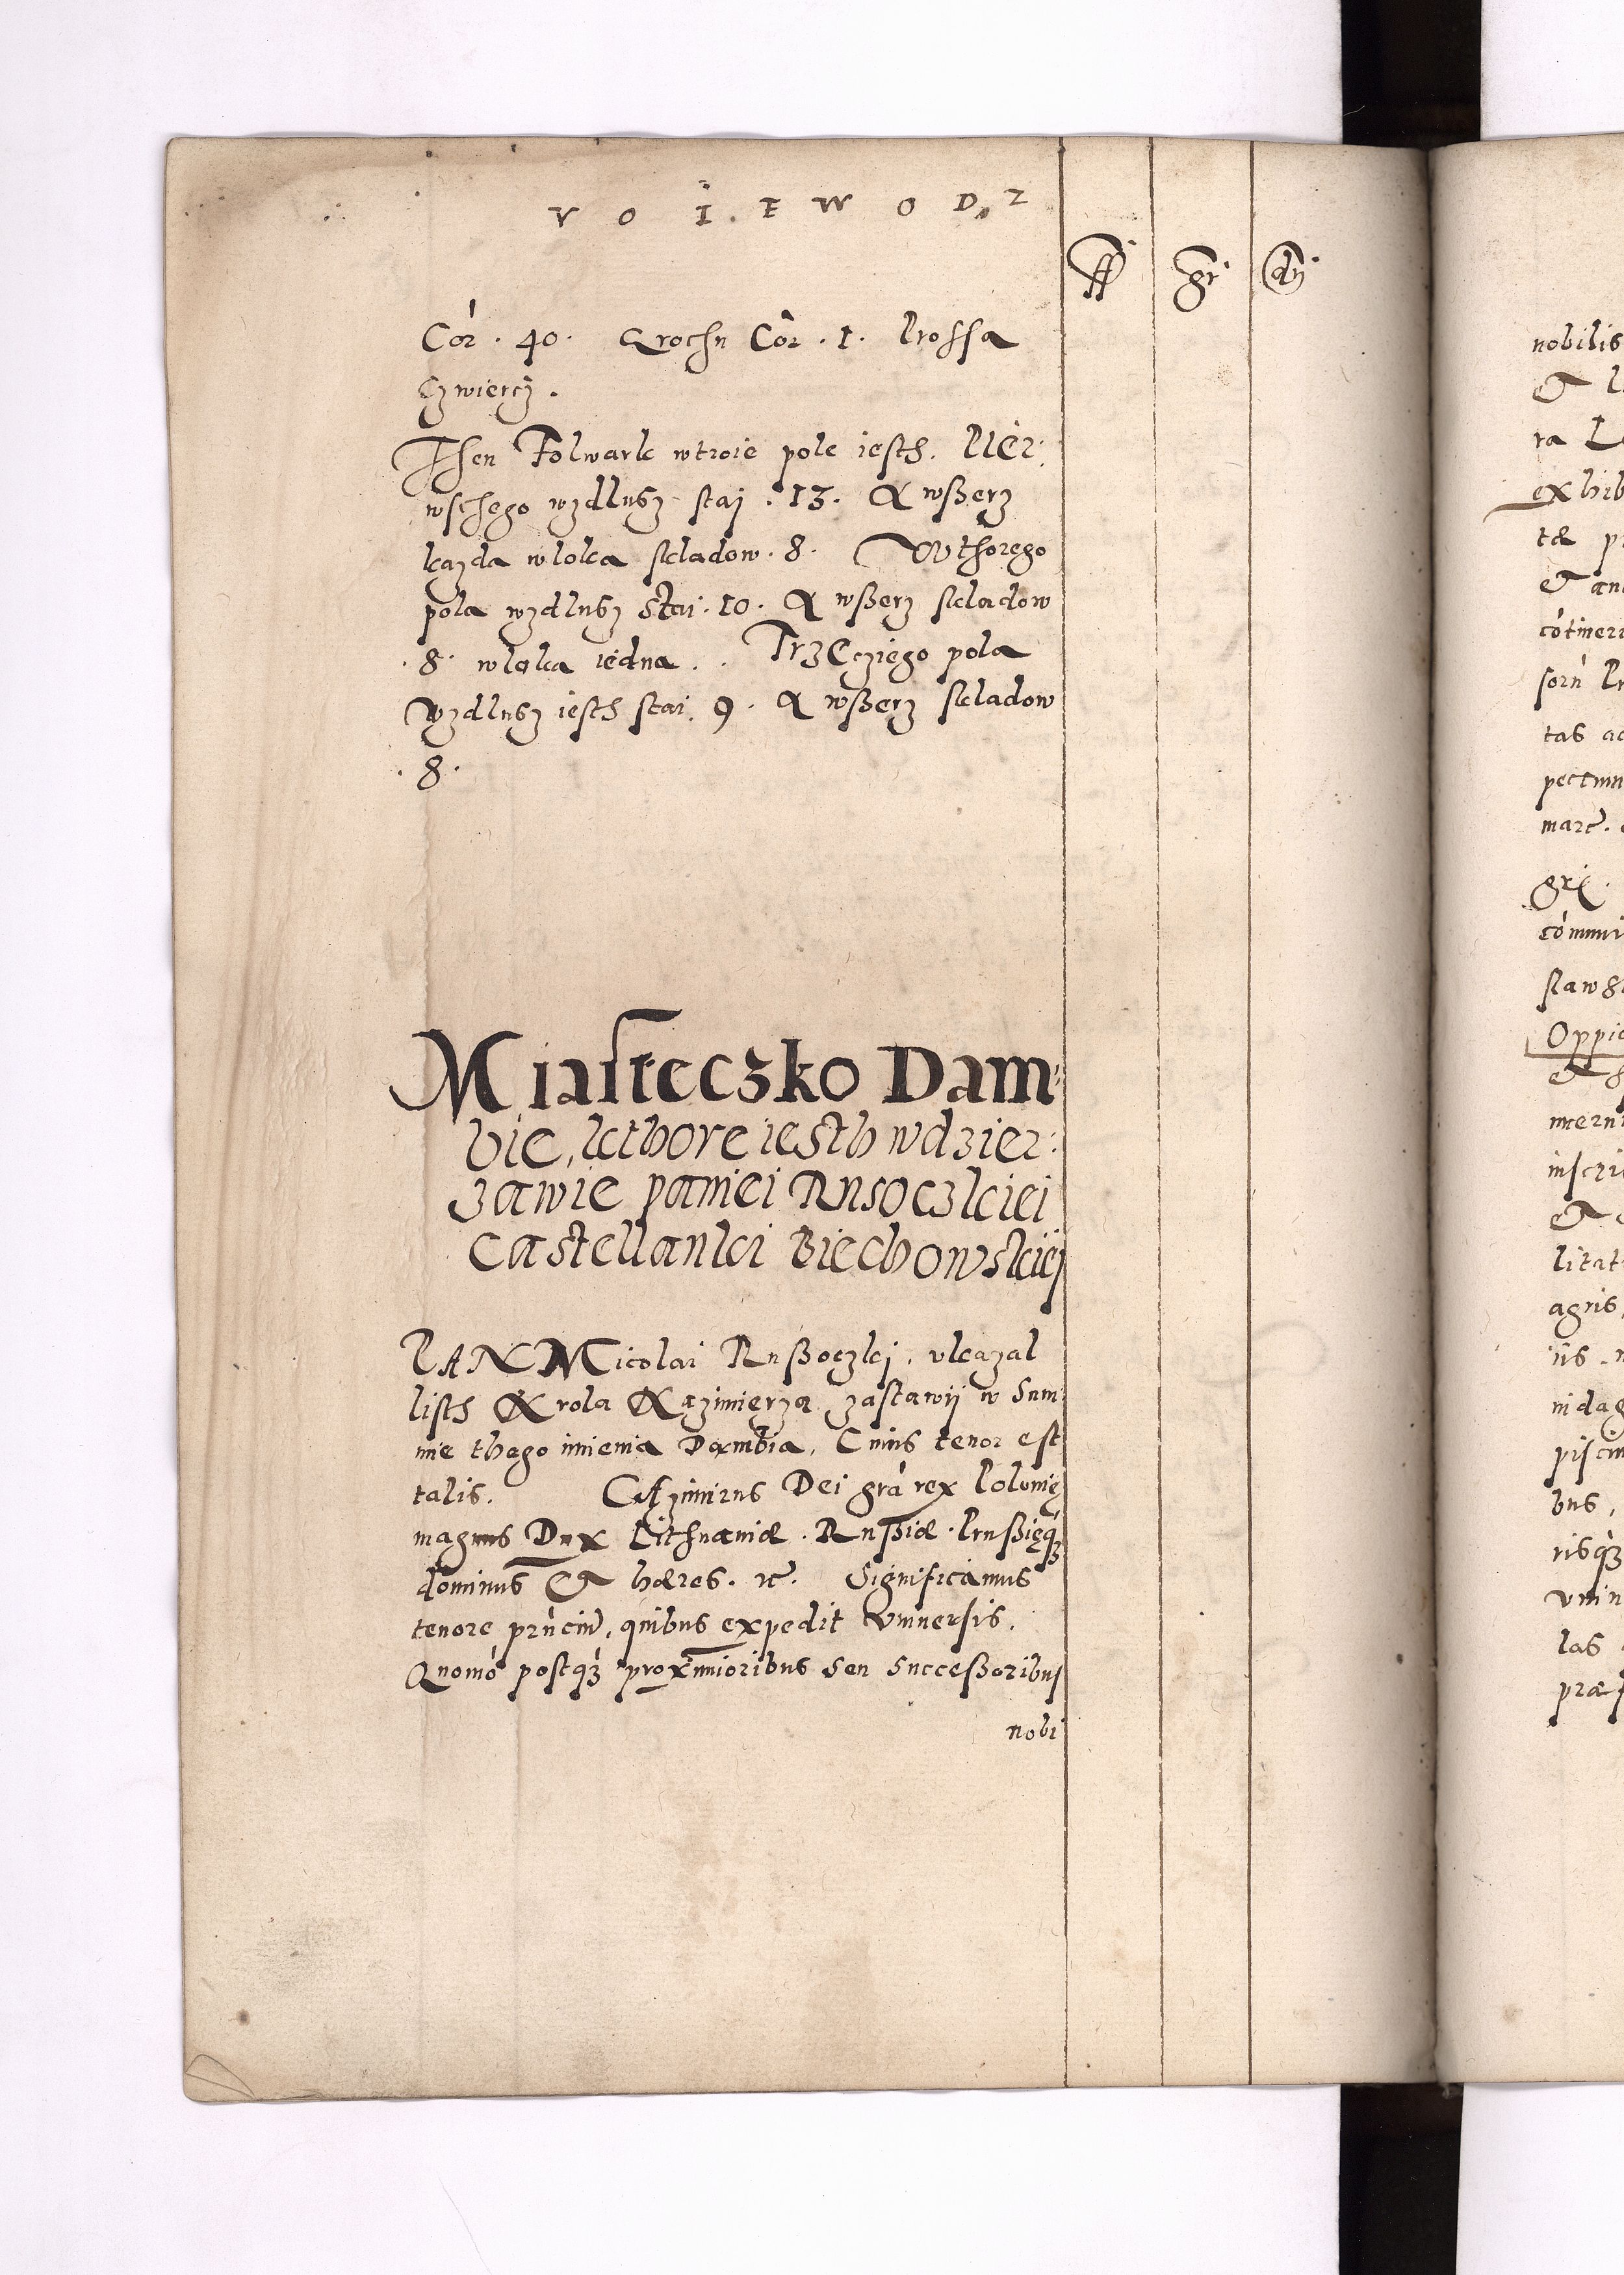 VOIEWODZ
fl. gr. dn.
Cor. 40. Grochu Cor. 1. Prossa
Czwiercz.
Then Folwark wtroie pole iesth. Pier:
wschego wzdlusz staj. 13. A wszerz
kazda wloka skladow. 8. Wthorego
pola wzdlusz stai. 10. A wszerz skladow
.8. wloka iedna. Trzecziego pola
Wzdlusz iesth stai. 9. A wszerz skladow
.8.
Miasteczko Dam:
bie, kthore iesth wdzier:
zawie paniei Rusoczkiei
Castellanki Biechowskiej
PAN Micolai Rußoczkj, vkazal
listh Krola Kazimierza zastawij w Sum:
mie thego imienia Dambia, Cuius tenor est
talis. CAzimirus Dei gra rex Polonię
magnus Dux Lithuaniæ. Rußiæ. Prußięq3
dominus Et hæres. rc. Significamus
tenore prńcium, quibus expedit Vniuersis.
Quomo postq3 proximioribus Seu Succeßoribus
nobi
nobilis
Et
ra
exhib
tæ
Et
tas
pectum
marc.
gr
stawsk
Oppid
Et
inscri
Et
litat
agris,
iis
pisci
bus,
risq3
vni
las
præ